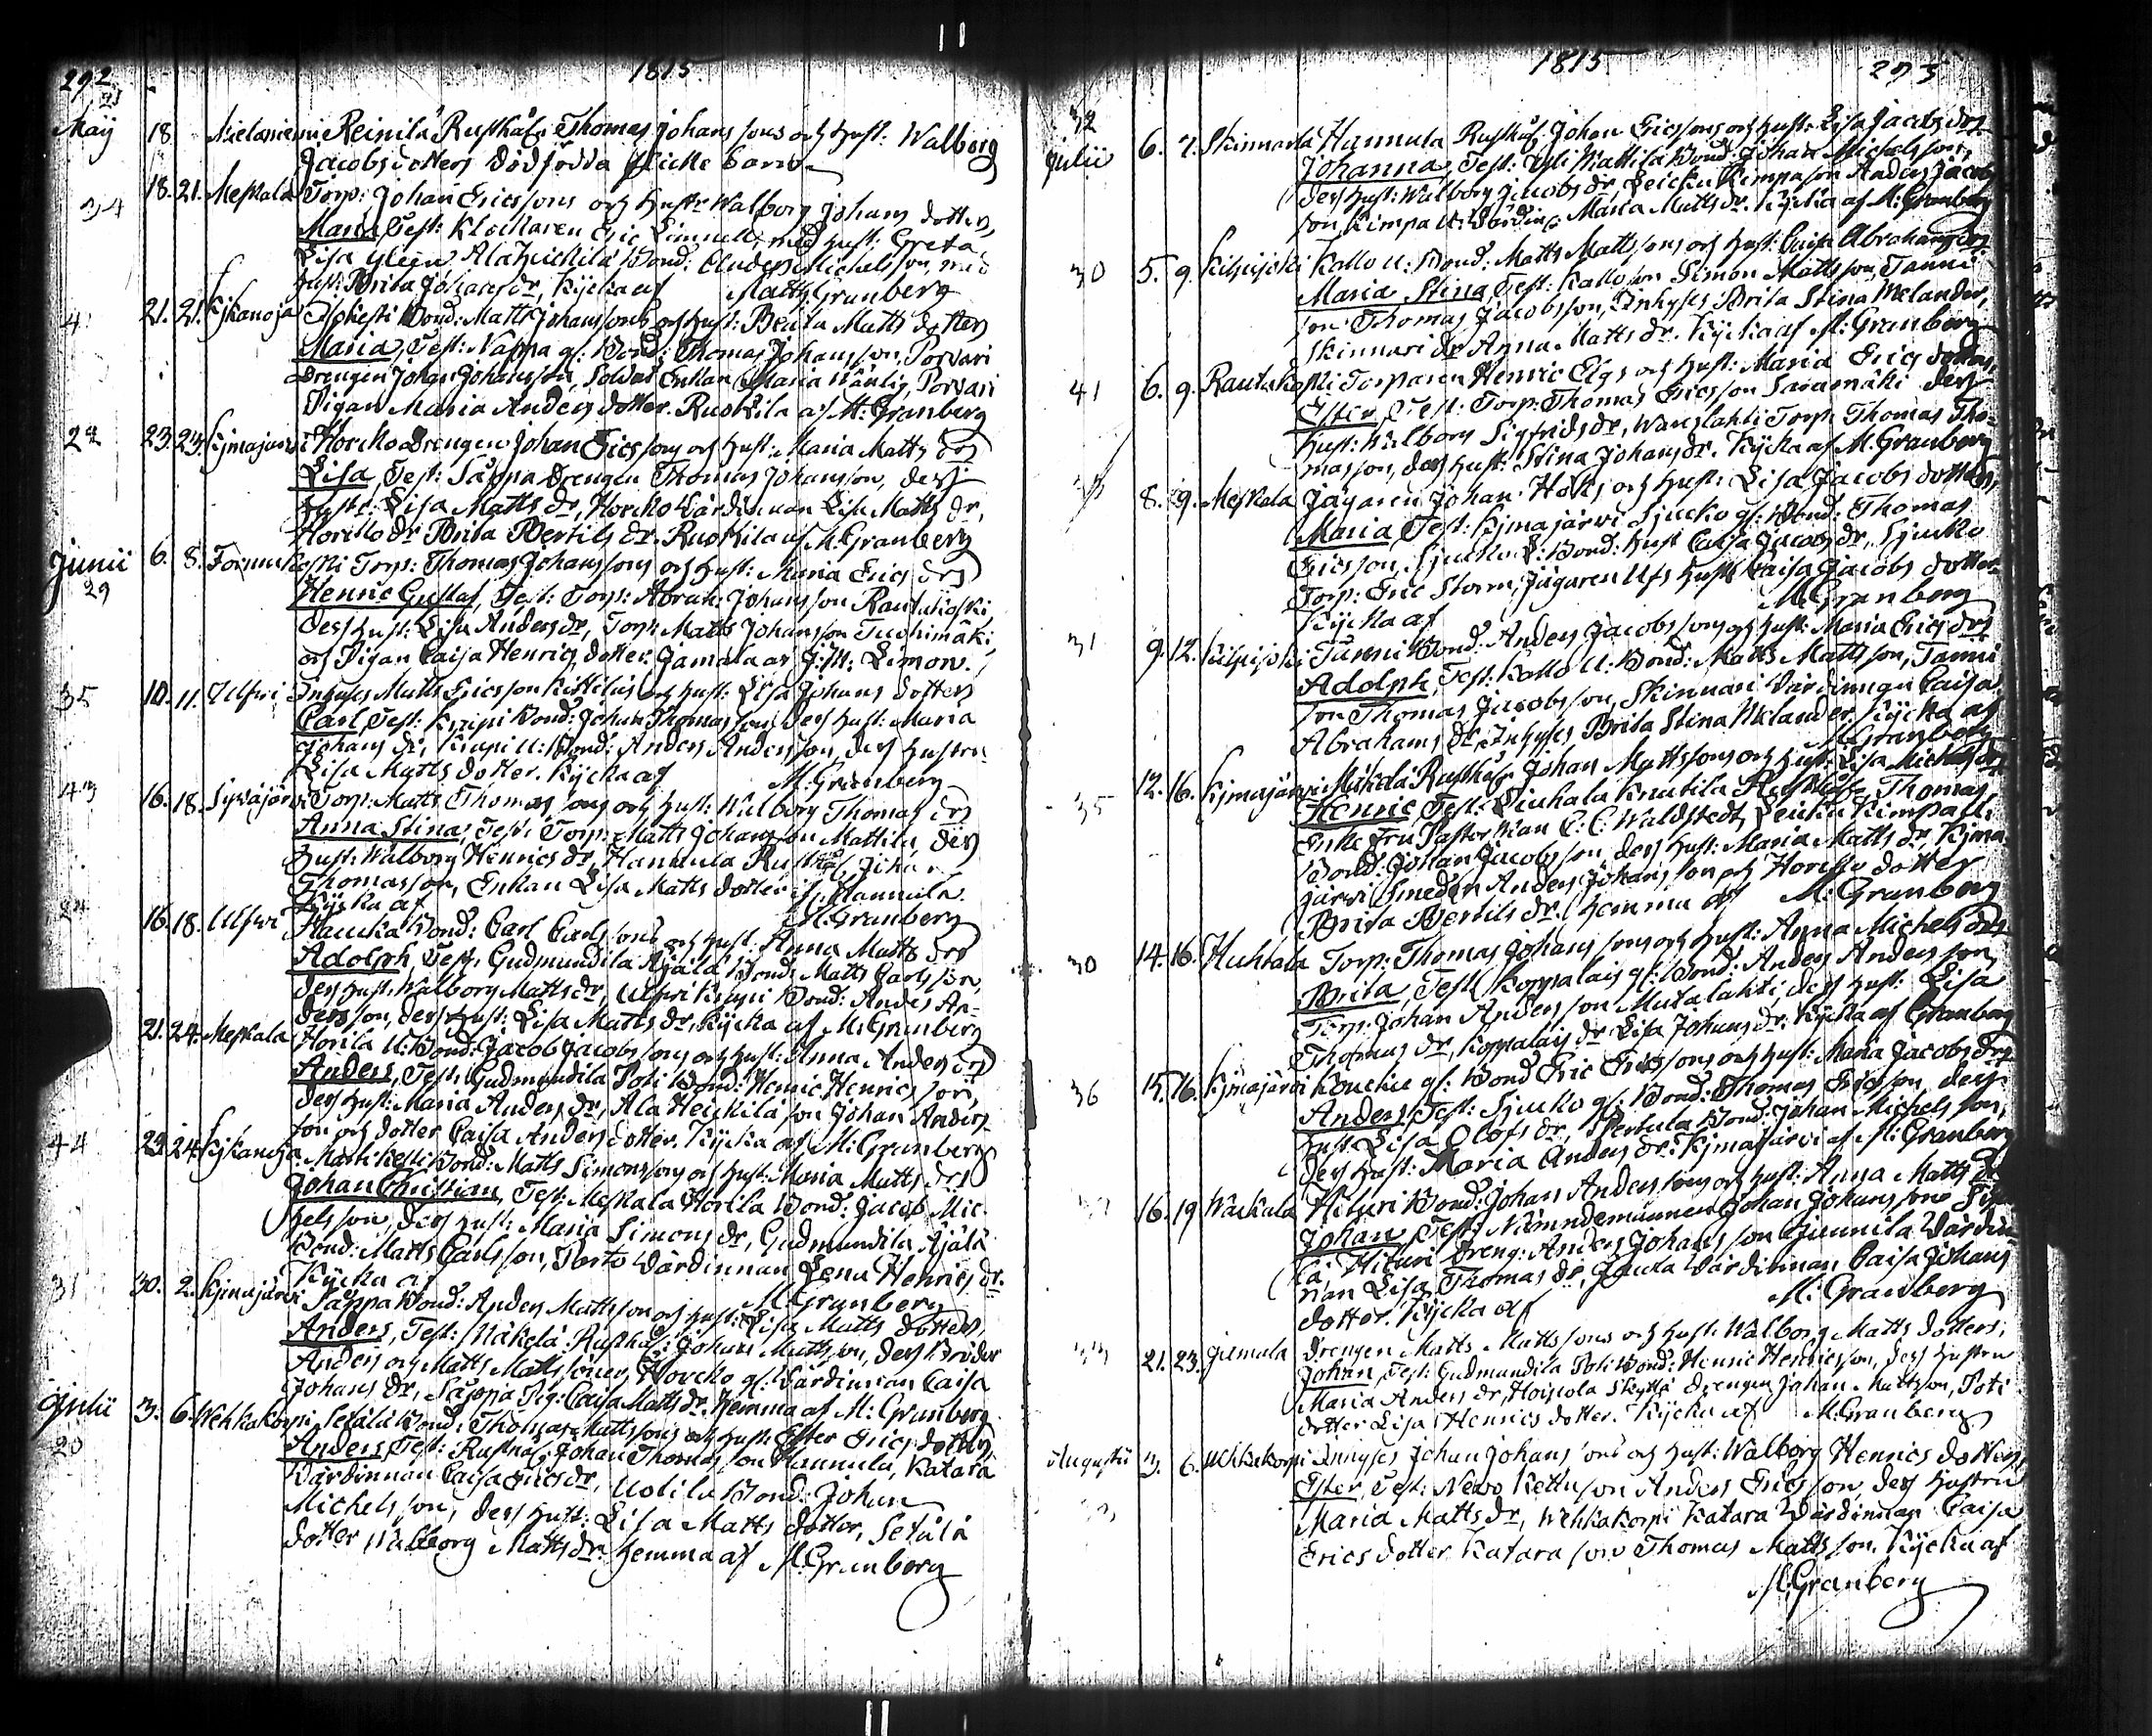 292
1815
May 18. Reinila Rusthål: Thomas Johans sons och hust: Walborg
Jacobs dotters dödfödda flicke barn
34 18. 21. Meskala Torp: Johan Ericssons och hustr Walborg Johans dotters
Maria, Test: Klockaren Eric med hust: Greta
Lisa Bond: Anders Michelsson, med
hust: Brita Johans dr, Kyrka af Matts Granberg
4 21. 21. Bond: Matts Johanssons och hust: Brita Matts dotters
Maria, Test: Nappa gl: Bond: Thomas Johansson, Porvari
Drengen Johan Johansson, Soldat Enkan Maria Porvari
Pigan Maria Anders dotter. Ruokila af M: Granberg
23. 23. Horcko Drengen Johan Ericssons och hust: Maria Matts drs
Lisa, Test: Säppä Drengen Thomas Johansson, dess
hustr: Lisa Matts dr, Horcko Värdinnan Lisa Matts dr,
Horcko dr Brita Bertils dr. Ruokila af M: Granberg
Junii 29 6. 8. Torp: Thomas Johanssons och hust: Maria Erics drs
Henric Gustaf, Test: Torp: Abrah: Johansson Rautukoski,
dess hust: Lisa Anders dr, Torp: Matts Johansson Tuohimäki,
och Pigan Caisa Henrics dotter. Jämälä af J: M: Limon.
35 10. 11. Ulfwi Inhyses Matts Ericsson och hust: Lisa Johans dotters
Carl, Test: Krypi Bond: Johan Thomasson, dess hust: Maria
Johans dr, Krupi U: Bond: Anders Andersson, dess hustru
Lisa Matts dotter. Kyrka af M: Granberg
43 16. 18. Syväjärvi Torp: Matts Thomas sons och hust: Walborg Thomas drs
Anna Stina, Test: Torp: Matts Johansson Mattila, dess
hust: Walborg Henrics dr, Hannula Rusthål: Johan
Thomasson, Enkan Lisa Matts dotter Hannula.
Kyrka af M: Granberg
16. 18. Ulfwi Hauka Bond: Carl Carlsons och hust: Anna Matts drs
Adolph, Test: Gudmundila Äjälä Bond: Matts Carlsson,
dess hust: Walborg Matts dr, Ulfwi Krupi Bond: Anders An-
dersson, dess hust: Lisa Matts dr, Kyrka af M: Granberg
21. 24. Meskala Horila U: Bond: Jacob Jacobssons och hust: Anna Anders drs
Anders, Test: Gudmundila Poti Bond: Henric Henricsson,
dess hust: Maria Anders dr, Ala Heickilä son Johan Anders-
son och dotter Caisa Anders dotter. Kyrka af M: Granberg
44 23. 24. Martikelli Bond: Matts Simonssons och hust: Maria Matts drs
Johan Christian, Test: Meskala Horila Bond: Jacob Mic-
helsson, dess hust: Maria Simons dr, Gudmundila Äjälä
Bond: Matts Carlsson, Porto Värdinnan Lena Henrics dr.
Kyrka af M: Granberg
31 30. 2. Kjmajärvi Säppä Bond: Anders Mattsson och hust: Lisa Matts dotters
Anders, Test: Mäkelä Rusthål: Johan Mattsson, dess Bröder
Anders och Matts Mattsöner, Horcko gl: Värdinnan Caisa
Johans dr, Säppä Pig: Caisa Matts dr. Hemma af M: Granberg
Julii 20 3. 6. Wehkakorpi Setälä Bond: Thomas Mattssons och hust: Ester Erics dotters
Anders, Test: Rusthål: Johan Thomasson Hannula, Katara
Värdinnan Caisa Erics dr, Uotila Bond: Johan
Michelsson, dess hust: Lisa Matts dotter, Setälä
dotter Walborg Matts dr. Hemma af M: Granberg
1815
293
32 Julii 6. 7. Skinnarla Hannula Rusthål: Johan Ericssons och hust: Lisa Jacobs drs
Johanna, Test: Yli Kattila Bond: Johan Michelsson,
dess hust: Walborg Jacobs dr, Leicku Kimpa son Anders Jacobs
son, Kimpa U: Värdin: Maria Matts dr. Kyrka af M: Granberg
30 5. 9. Kilpijoki Kallo U: Bond: Matts Mattssons och hust: Caisa Abrahams drs
Maria Stina, Test: Kallo son Simon Mattsson, Tanni
son Thomas Jacobsson, Inhyses Brita Stina Melander,
Skinnari dr Anna Matts dr. Kyrka af M: Granberg
41 6. 9. Rautukoski Torparen Henric Elgs och hust: Maria Erics dotters
Ester, Test: Torp: Thomas Ericsson Saramäki dess
hust: Walborg Sigfrids dr, Torp: Thomas Tho-
masson, dess hust: Stina Johans dr. Kyrka af M: Granberg
8. 9. Meskala Jägaren Johan Höks och hust: Lisa Jacobs dotters
Maria, Test: Kjmajärvi Sjucko gl: Bond: Thomas
Ericsson, Sjucko U: Bond: hust Caisa Jacobs dr, Sjucko
Torp: Eric Storm, Jägaren Ulfs hust: Caisa Jacobs dotter
Kyrka af M: Granberg
31 9. 12. Kilpijoki Tanni Bond: Anders Jacobssons och hust: Maria Erics drs
Adolph, Test: Kallo U: Bond: Matts Mattsson, Tanni
son Thomas Jacobsson, Skinnari Värdinnan Caisa
Abrahams dr, Inhyses Brita Stina Melander. Kyrka af
M: Granberg
35 12. 16. Kjmajärvi Mäkelä Rusthål: Johan Mattssons och hust: Lisa Michels drs
Henric, Test: Liuhala Knutila Rusthål: Thomas,
Enke Fru Pastorskan C: C: Waldstedt, Leicku Kimpa U:
Bond: Johan Jacobsson, dess hust: Maria Matts dr, Kjma-
järvi Smeden Anders Johansson och Horcko dotter
Brita Bertils dr. Hemma af M: Granberg
30 14. 16. Huhtala Torp: Thomas Johanssons och hust: Anna Michels drs
Brita, Test: Koppalais gl: Bond: Anders Andersson,
Torp: Johan Andersson Mutalahti, dess hust: Lisa
Thomas dr, Koppalais dr: Lisa Johans dr. Kyrka af Granberg
36 15. 16. Kjmajärvi Kouckie gl: Bond Eric Ericssons och hust: Maria Jacobs drs
Anders, Test: Sjucko gl: Bond: Thomas Ericsson, dess
hust: Lisa Olofs dr, Pertula Bond: Johan Michelsson,
dess hust: Maria Anders dr. Kjmajärvi af M: Granberg
16. 19 Hituri Bond: Johan Anderssons och hust: Anna Matts drs
Johan, Test: Nämndemannen Johan Johansson
Hituri Dreng: Anders Johansson Gunnila Värdin-
nan Lisa Thomas dr, Värdinnan Caisa Johans
dotter. Kyrka af M: Granberg
33 21. 23. Drengen Matts Mattssons och hust: Walborg Matts dotters,
Johan, Test: Gudmundila Poti Bond: Henric Henricsson, dess hustru
Maria Anders dr, Hoipola Skytta Drengen Johan Mattsson, Poti
dotter Lisa Henrics dotter. Kyrka af M: Granberg
Augusti 3. 6. Wehkakorpi Inhyses Johan Johanssons och hust: Walborg Henrics dotters
Ester, Test: Nevo Kettu son Anders Ericsson, dess hustru
Maria Matts dr, Wehkakorpi Katara Värdinnan Caisa
Erics dotter, Katara son Thomas Mattsson. Kyrka af
M: Granberg